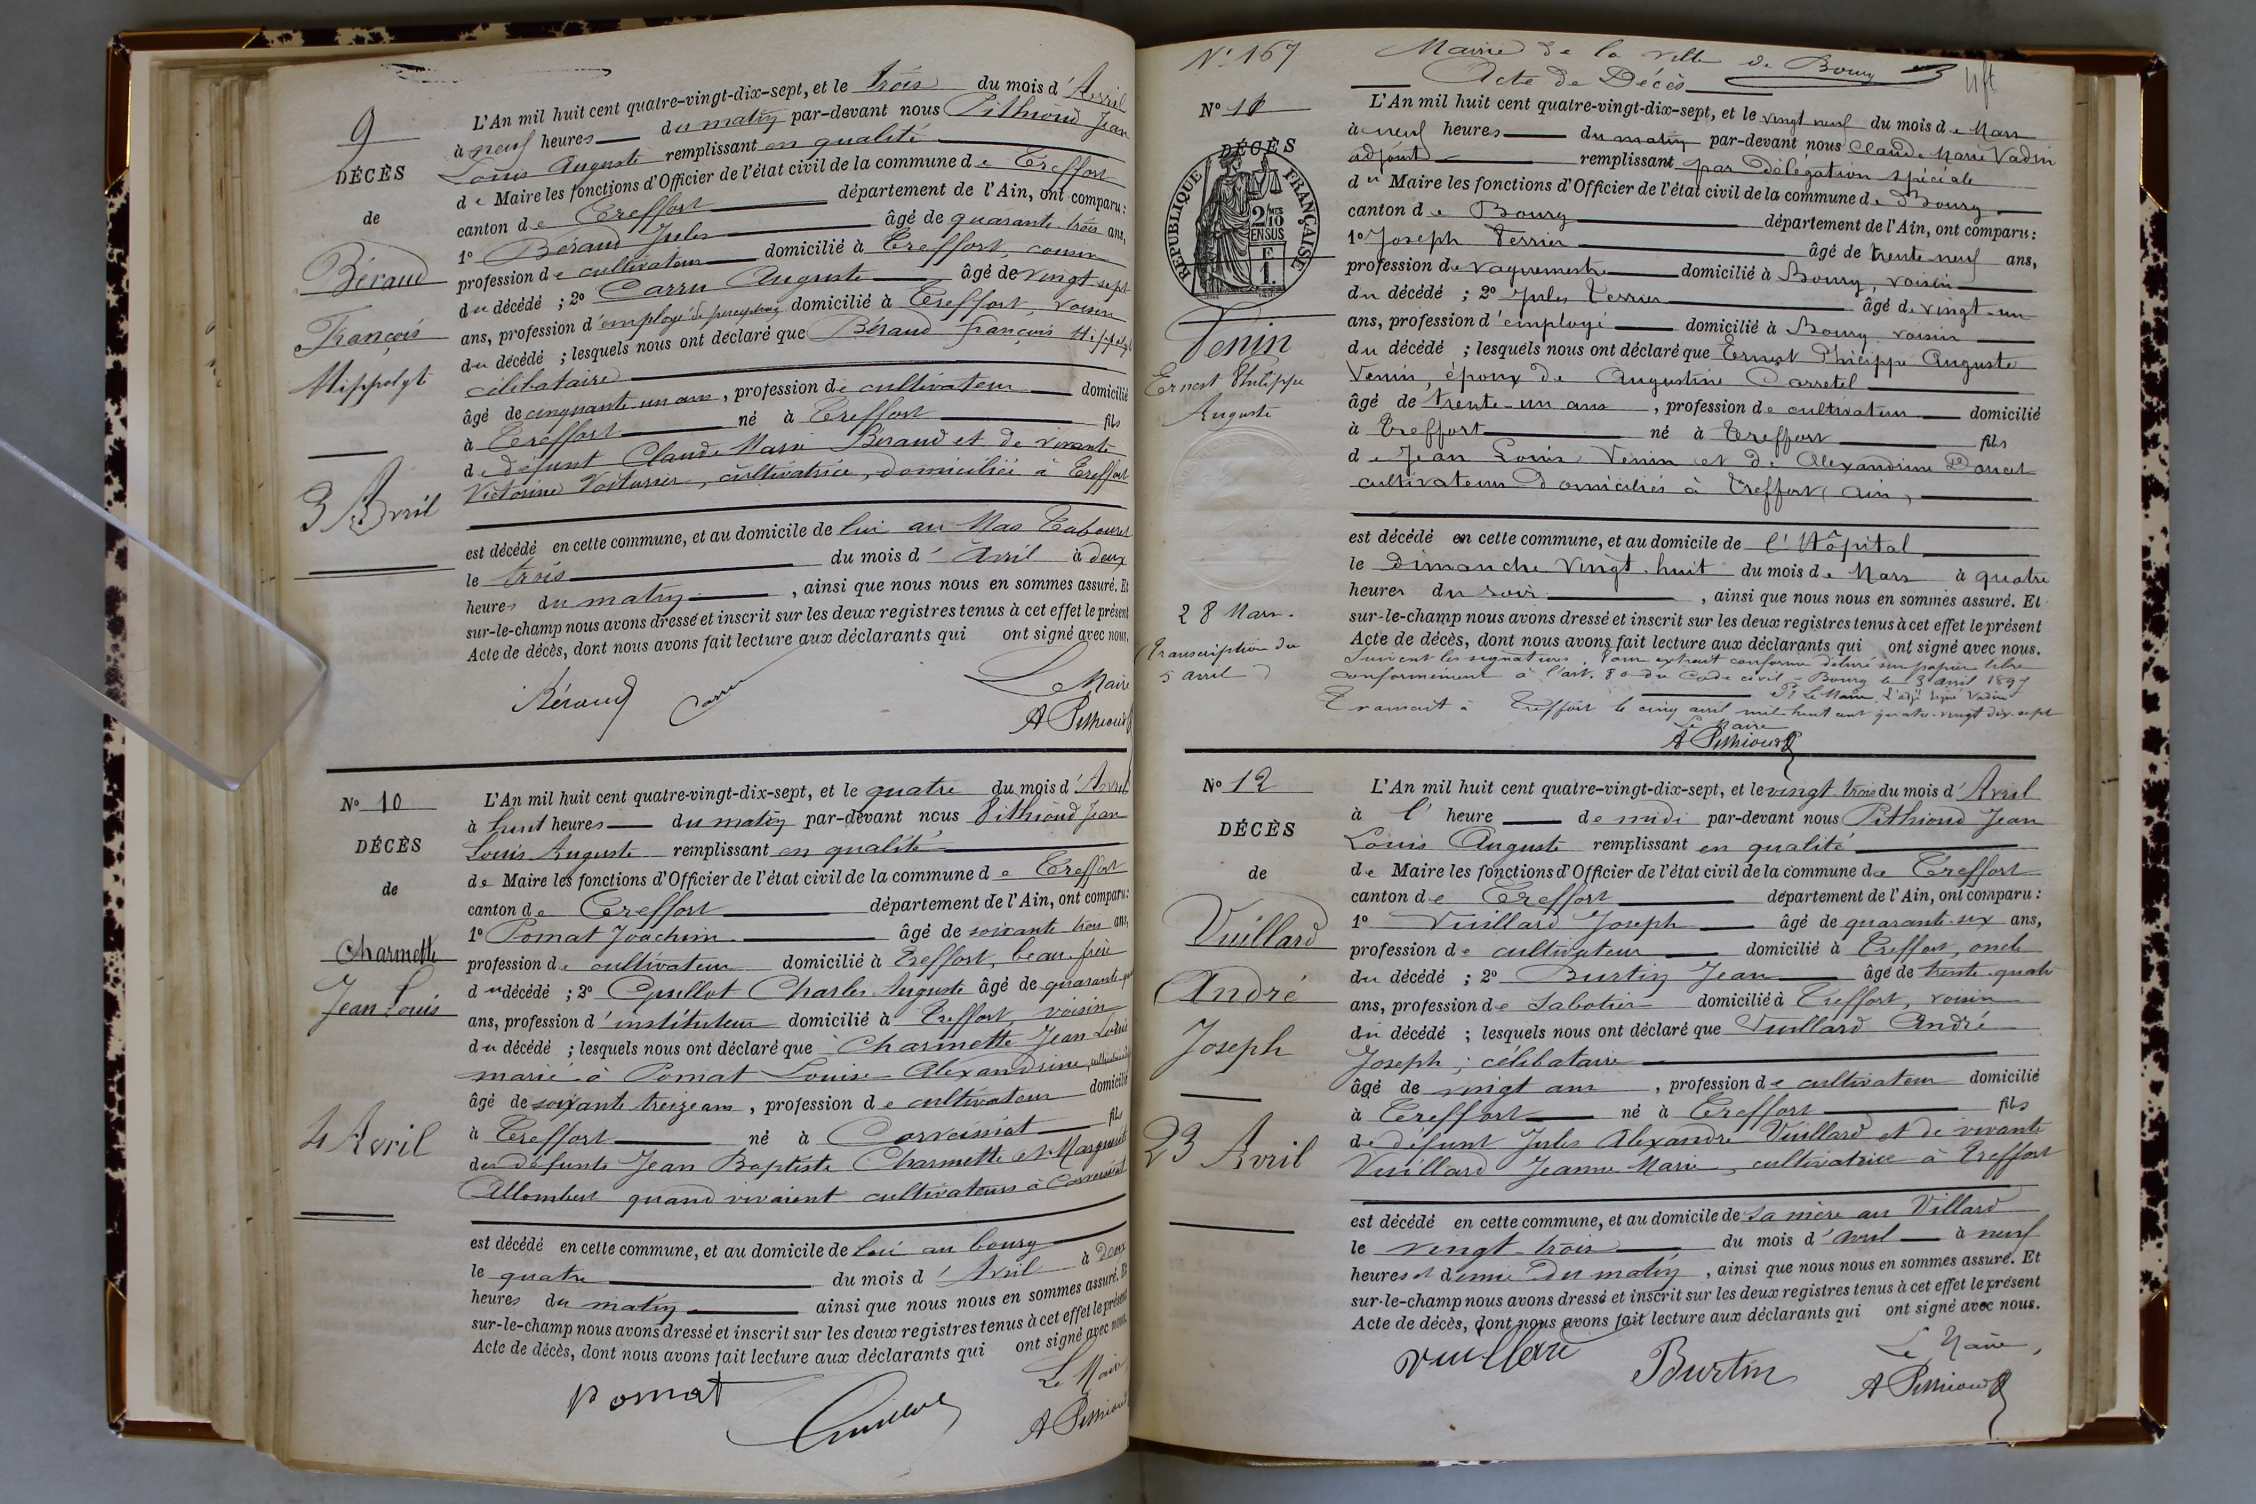 9
DÉCÈS
de
Béraud
François
Hippolyte
3 Avril
L'An mil huit cent quatre-vingt-dix-sept, et le trois du mois d'Avril
à neuf heures du matin par-devant nous Pithioud Jean
Louis Auguste remplissant en qualité
de Maire les fonctions d'Officier de l'état civil de la commune de Treffort
canton de Treffort département de l'Ain, ont comparu:
1º Béraud Jules âgé de quarante trois ans,
profession de cultivateur domicilié à Treffort, cousin
du décédé ; 2º Carru Auguste âgé de vingt sept
ans, profession d'employé de perception domicilié à Treffort, voisin
du décédé ; lesquels nous ont déclaré que Béraud françois Hippolyte
célibataire
âgé de cinquante-un ans, profession de cultivateur domicilié
à Treffort né à Treffort fils
de défunt Claude Marie Béraud et de vivante
Victorine Voiturier, cultivatrice, domiciliée à Treffort
est décédé en cette commune, et au domicile de lui au Mas Tabouret
le trois du mois d'Avril à deux
heures du matin, ainsi que nous nous en sommes assuré. Et
sur-le-champ nous avons dressé et inscrit sur les deux registres tenus à cet effet le présent
Acte de décès, dont nous avons fait lecture aux déclarants qui ont signé avec nous.
Le Maire
Béraud Carru A Pithioud
Nº 10
DÉCÈS
de
Charmette
Jean Louis
4 Avril
L'An mil huit cent quatre-vingt-dix-sept, et le quatre du mois d'Avril
à huit heures du matin par-devant nous Pithioud Jean
Louis Auguste remplissant en qualité
de Maire les fonctions d'Officier de l'état civil de la commune de Treffort
canton de Treffort département de l'Ain, ont comparu:
1º Pomat Joachim âgé de soixante trois ans,
profession de cultivateur domicilié à Treffort, beau-frère
du décédé ; 2º Guillot Charles Auguste âgé de quarante
ans, profession d'instituteur domicilié à Treffort voisin
du décédé ; lesquels nous ont déclaré que Charmette Jean Louis
marié à Pomat Louise Alexandrine,
âgé de soixante treize ans, profession de cultivateur domicilié
à Treffort né à Corveissiat fils
des défunts Jean Baptiste Charmette et Marguerite
Allombert quand vivaient cultivateurs à Corveissiat
est décédé en cette commune, et au domicile de lui au bourg
le quatre du mois d'Avril à Deux
heures du matin ainsi que nous nous en sommes assuré. Et
sur-le-champ nous avons dressé et inscrit sur les deux registres tenus à cet effet le présent
Acte de décès, dont nous avons fait lecture aux déclarants qui ont signé avec nous.
Le Maire
Pomat Guillot A Pithioud
Nº 167 Mairie de la ville de Bourg
Acte de Décès
Nº 11
DÉCÈS
RÉPUBLIQUE FRANÇAISE
2 MES
10
EN SUS
F
1.
Venin
Ernest Philippe
Auguste
28 Mars.
(Transcription du
5 avril)
L'An mil huit cent quatre-vingt-dix-sept, et le vingt neuf du mois de Mars
à neuf heures du matin par-devant nous Claude Marie Vadin
adjoint remplissant par Délégation spéciale
du Maire les fonctions d'Officier de l'état civil de la commune de Bourg
canton de Bourg département de l'Ain, ont comparu:
1º Joseph Terrier âgé de trente-neuf ans,
profession de vaguemestre domicilié à Bourg, voisin
du décédé ; 2º Jules Terrier âgé de vingt-un
ans, profession d'employé domicilié à Bourg voisin
du décédé ; lesquels nous ont déclaré que Ernest Philippe Auguste
Venin, époux de Augustine Carretel
âgé de trente-un ans, profession de cultivateur domicilié
à Treffort né à Treffort fils
de Jean Louis Venin et de Alexandrine Doucet
cultivateurs domiciliés à Treffort (Ain),
est décédé en cette commune, et au domicile de l'Hôpital
le Dimanche Vingt-huit du mois de Mars à quatre
heures du soir, ainsi que nous nous en sommes assuré. Et
sur-le-champ nous avons dressé et inscrit sur les deux registres tenus à cet effet le présent
Acte de décès, dont nous avons fait lecture aux déclarants qui ont signé avec nous.
Suivent les signatures. Pour extrait conforme délivré sur papier libre
conformément à l'art. 80 du Code civil - Bourg le 3 avril 1897
Pr Le Maire, L'adjt signé Vadin
Transcrit à Treffort le cinq avril mil huit cent quatre-vingt dix-sept
Le Maire
A Pithioud
Nº 12
DÉCÈS
de
Vuillard
André
Joseph
23 Avril
L'An mil huit cent quatre-vingt-dix-sept, et le vingt trois du mois d'Avril
à l'heure de midi par-devant nous Pithioud Jean
Louis Auguste remplissant en qualité
de Maire les fonctions d'Officier de l'état civil de la commune de Treffort
canton de Treffort département de l'Ain, ont comparu:
1º Vuillard Joseph âgé de quarante-six ans,
profession de cultivateur domicilié à Treffort, oncle
du décédé ; 2º Burtin Jean âgé de trente-quatre
ans, profession de Sabotier domicilié à Treffort, voisin
du décédé ; lesquels nous ont déclaré que Vuillard André
Joseph, célibataire
âgé de vingt ans, profession de cultivateur domicilié
à Treffort né à Treffort fils
de défunt Jules Alexandre Vuillard et de vivante
Vuillard Jeanne Marie, cultivatrice à Treffort
est décédé en cette commune, et au domicile de sa mère au Villard
le vingt-trois du mois d'avril à neuf
heures et demie du matin, ainsi que nous nous en sommes assuré. Et
sur-le-champ nous avons dressé et inscrit sur les deux registres tenus à cet effet le présent
Acte de décès, dont nous avons fait lecture aux déclarants qui ont signé avec nous.
Le Maire,
Vuillard Burtin A Pithioud